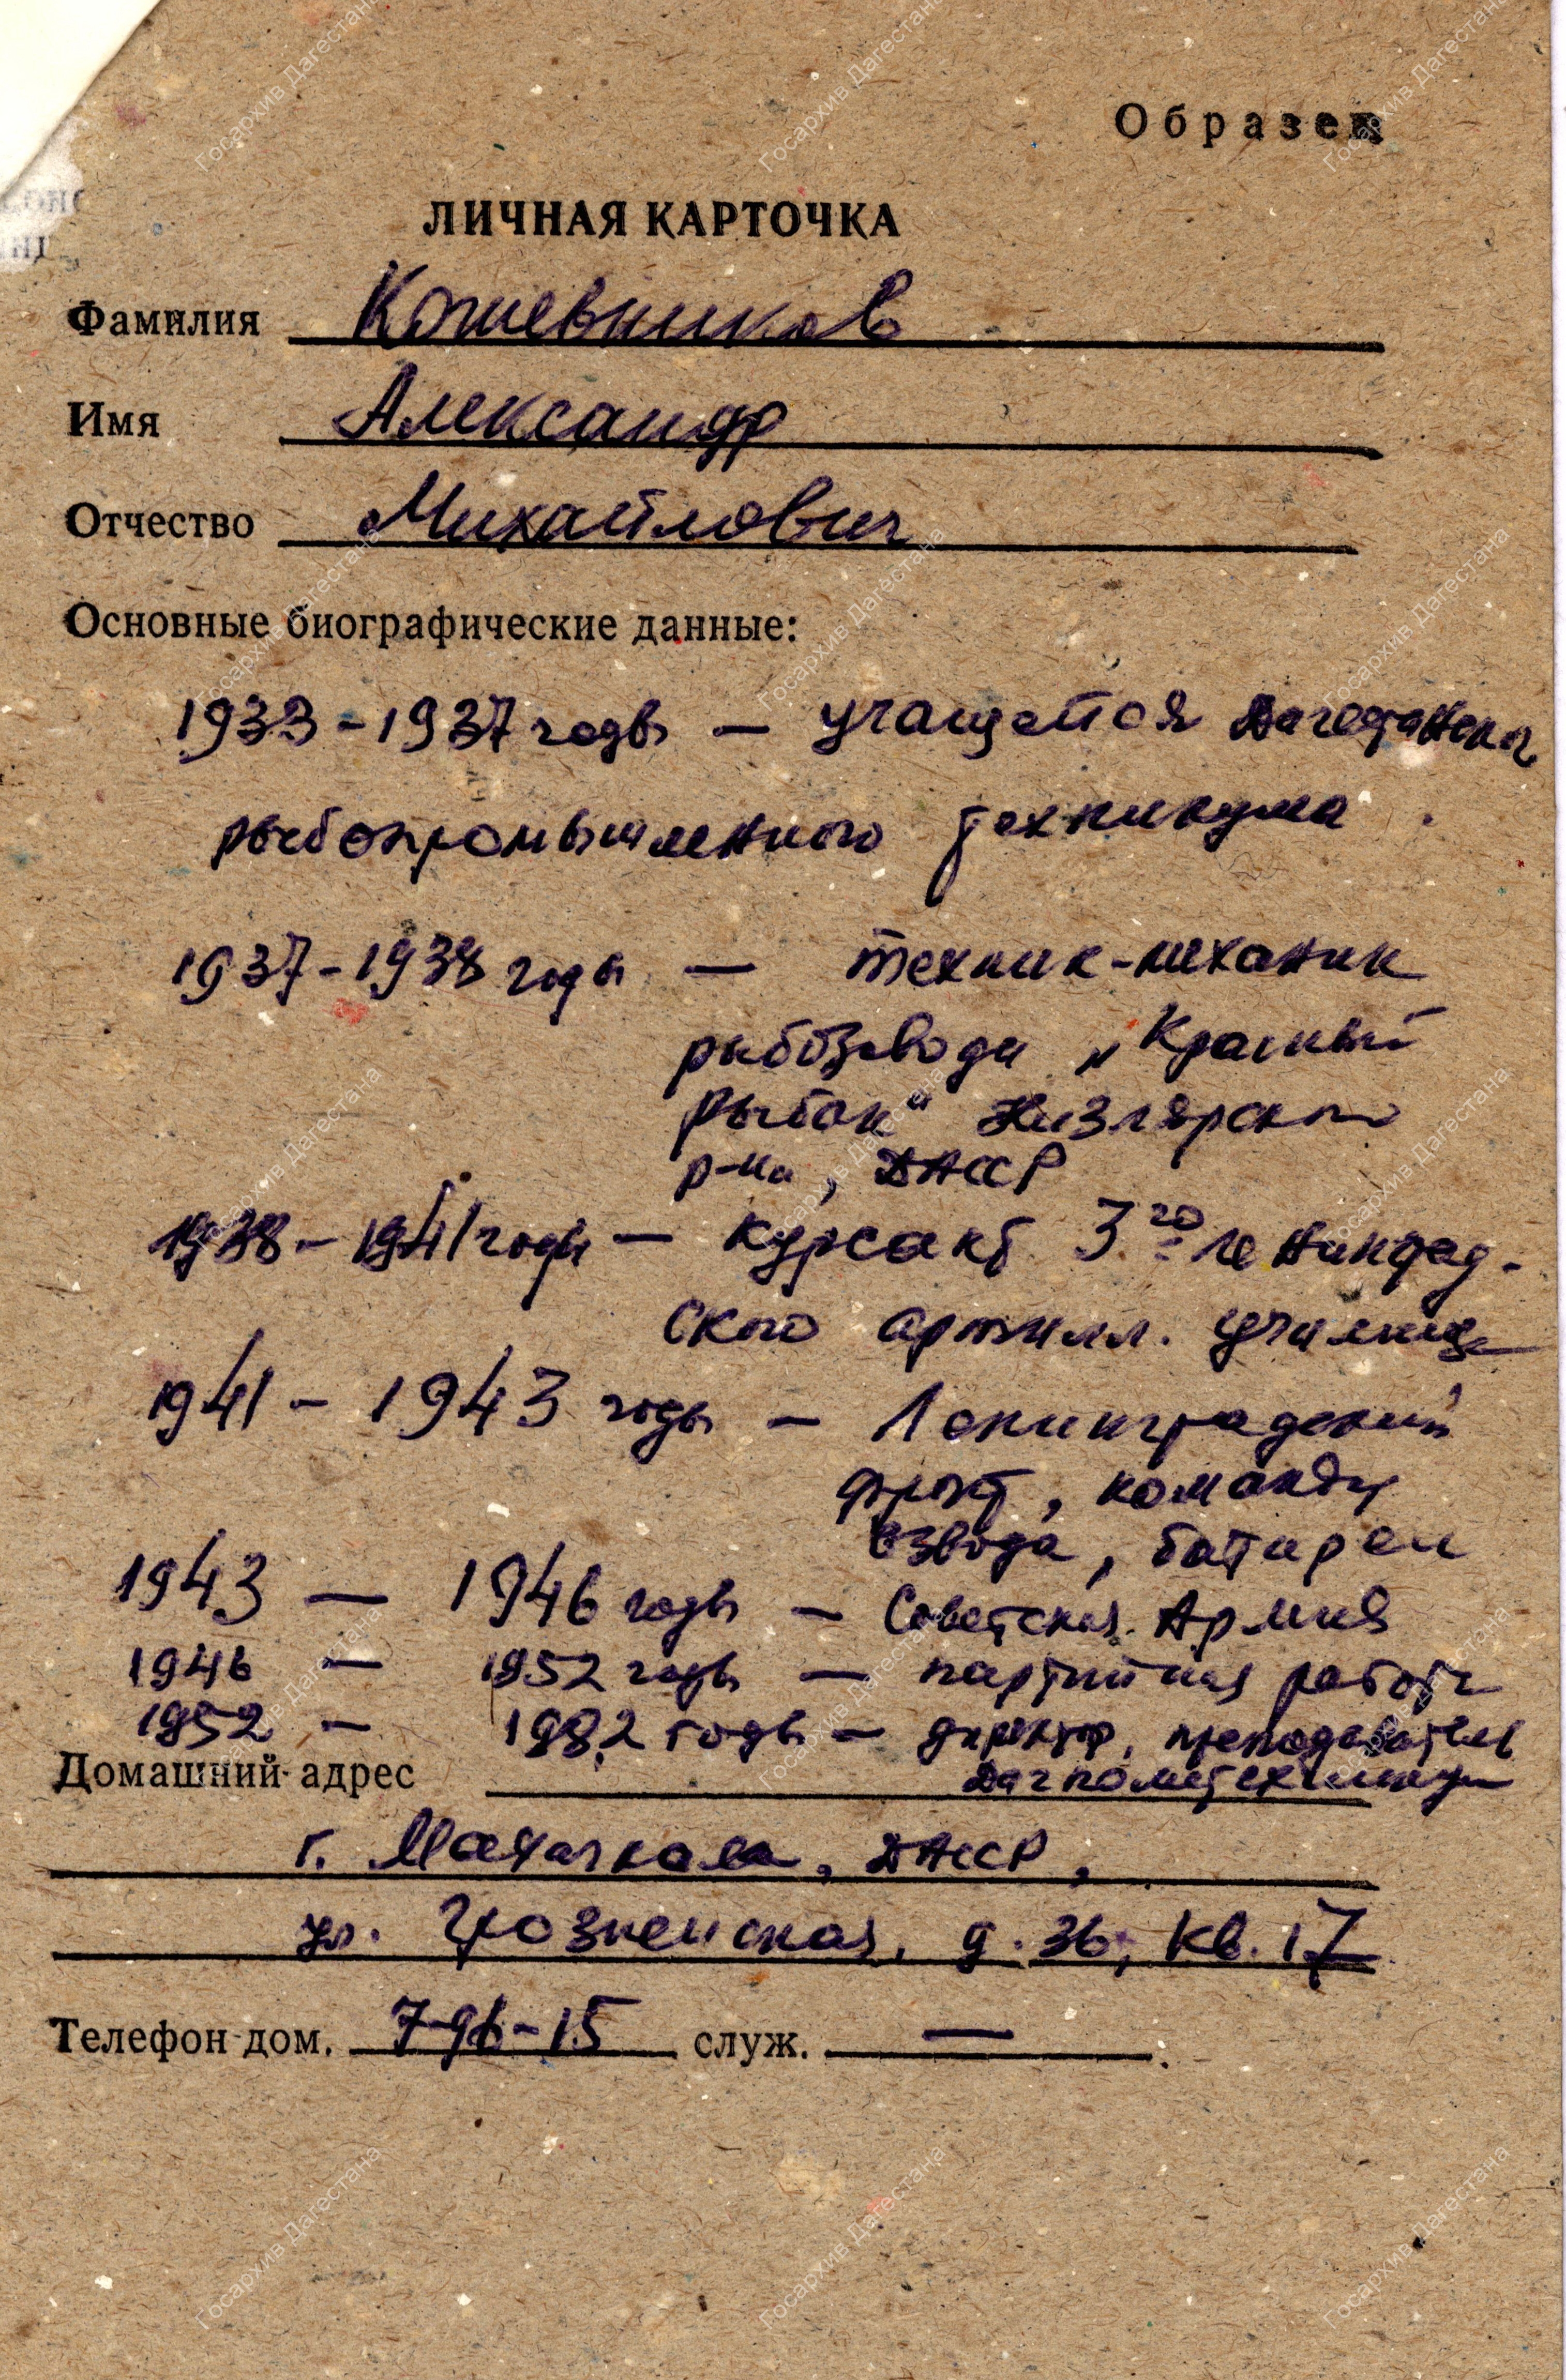 Образец
ЛИЧНАЯ КАРТОЧКА
Фамилия Кожевников
Имя Александр
Отчество Михайлович
Основные биографические данные:
1933 - 1937 годы — учащийся Дагестанского
рыбопромышленного техникума.
1937 - 1938 годы — техник-механик
рыбозавода „Красный
рыбак" Кизлярского
р-на, ДАССР
1938 - 1941 годы — курсант 3го Ленинград-
ского артилл. училища
1941 - 1943 годы — Ленинградский
фронт, командир
взвода, батареи
1943 — 1946 годы — Советская Армия
1946 — 1952 годы — партийная работа
1952 — 1982 годы — директор, преподаватель
Домашний адрес
г. Махачкала, ДАССР,
ул. Грозненская, д. 36, кв. 17
Телефон дом. 7-96-15 служ. —.
Госархив Дагестана